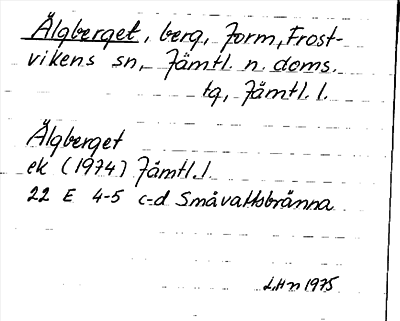 Älgberget, berg, form, Frost-
vikens sn, Jämtl. n. doms.
tg, Jämtl. l.
Älgberget
ek (1974) Jämtl. l.
22 E 4-5 c-d Småvattsbränna
LHn 1975